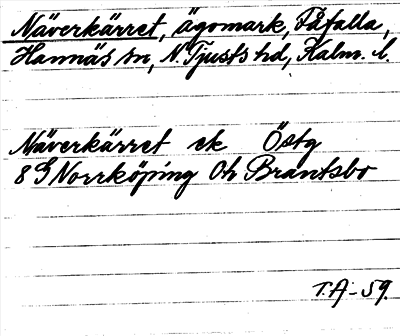 Näverkärret, ägomark, Fåfalla,
Hannäs sn, N. Tjusts hd, Kalm. l.
Näverkärret ek Östg
8 G Norrköping Oh Brantsbo
T.A-59.